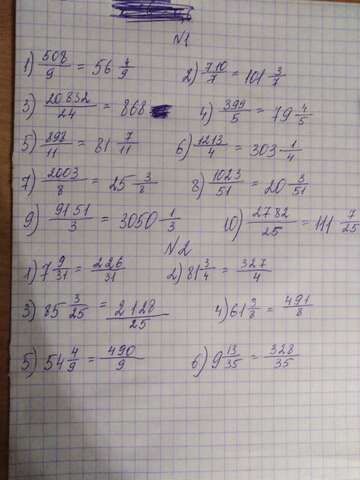 N1
1) 508/9 = 56 4/9 2) 710/7 = 101 3/7
3) 20832/24 = 868 4) 399/5 = 79 4/5
5) 898/11 = 81 7/11 6) 1213/4 = 303 1/4
7) 2003/8 = 25 3/8 8) 1023/51 = 20 3/51
9) 9151/3 = 3050 1/3 10) 2782/25 = 111 7/25
N2
1) 7 9/31 = 226/31 2) 81 3/4 = 327/4
3) 85 3/25 = 2128/25 4) 61 3/8 = 491/8
5) 54 4/9 = 490/9 6) 9 13/35 = 328/35